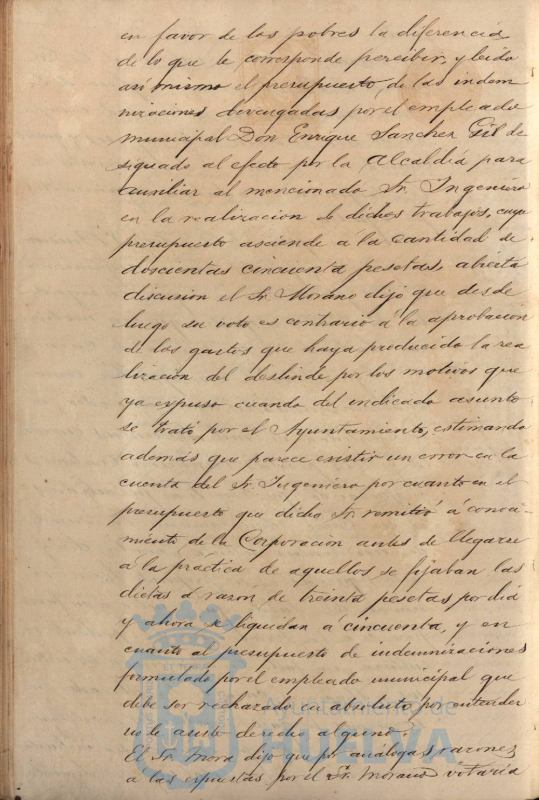 en favor de los pobres la diferencia
de lo que le corresponde percibir, y leido
asi mismo el presupuesto, de las indem
nizaciones devengadas por el empleado
municipal Don Enrique Sanchez Gil de
signado al efecto por la Alcaldia para
auxiliar al mencionado Sr. Ingeniero
en la realizacion de dichos trabajos, cuyo
presupuesto asciende á la cantidad de
doscientas cincuenta pesetas, abierta
discusion el Sr. Morano dijo que desde
luego su voto es contrario á la aprobacion
de los gastos que haya producido la rea
lizacion del deslinde por los motivos que
ya expuso cuando del indicado asunto
se trató por el Ayuntamiento, estimando
además que parece existir un error en la
cuenta del Sr. Ingeniero por cuanto en el
presupuesto que dicho Sr. remitió á conoci-
miento de la Corporacion antes de llegarse
á la práctica de aquellos, se fijaban las
dietas á razón de treinta pesetas por dia
y ahora se liquidan á cincuenta, y en
cuanto al presupuesto de indemnizaciones
formulado por el empleado municipal que
debe ser rechazado en absoluto por entender
no le asiste derecho alguno.
El Sr. Mora dijo que por análogas razones
á las expuestas por el Sr. Morano votaria
Ayuntamiento de
HUELVA